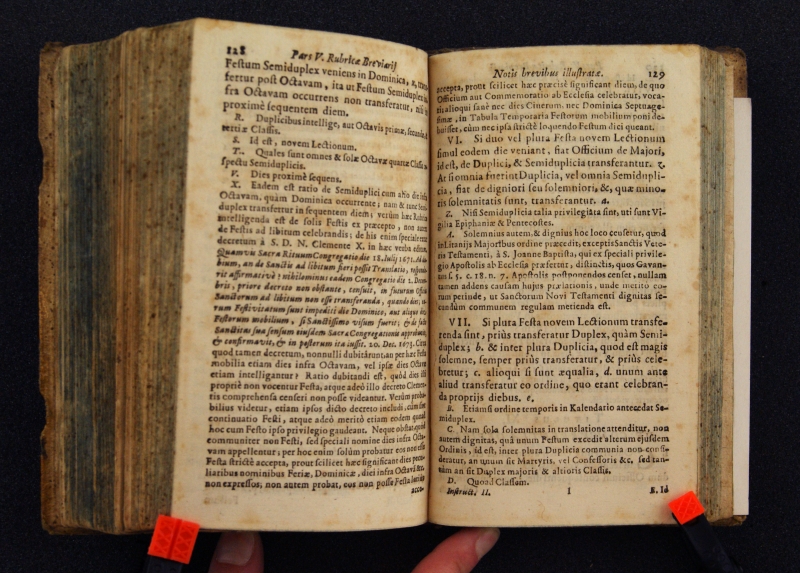 128 Pars V. Rubricæ Breviarij
Festum Semiduplex veniens in Dominica,
fertur post Octavam, ita ut Festum Semiduplex in-
fra Octavam occurrens non transferatur, nisi
proximè sequentem diem.
R. Duplicibus intellige, aut Octavis primæ, secundæ,
tertiæ Classis.
S. Id est, novem Lectionum.
T. Quales sunt omnes & solæ Octavæ quartæ Classis
spectu Semiduplicis.
V. Dies proximè sequens.
X. Eadem est ratio de Semiduplici cum alio die infra
Octavam, quàm Dominica occurrente; nam & tunc Semi-
duplex transfertur in sequentem diem; verùm hæc Rubrica
intelligenda est de solis Festis ex præcepto, non autem
de Festis ad libitum celebrandis; de his enim speciale
decretum à S. D. N. Clemente X. in hæc verba
Quamvis Sacra Rituum Congregatio die 18. Julij 1671. Ad
bium, an de Sanctis ad libitum fieri possit Translatio,
rit affirmativè: nihilominus eadem Congregatio die 2. Decem-
bris, priore decreto non obstante, censuit, in futurum Officia
Sanctorum ad libitum non esse transferenda, quando dies
rum Festivitatum sunt impediti die Dominico, aut alique
Festorum mobilium, si Sanctissimo visum fuerit; & die
Sanctitas sua sensum ejusdem Sacra Congregationis approbavit,
& confirmavit, & in posterum ita jussit. 20. Dec. 1673. Circa
quod tamen decretum, nonnulli dubitârunt, an per hæc Festa
mobilia etiam dies infra Octavam, vel ipsæ dies Octavæ
etiam intelligantur? Ratio dubitandi est, quòd dies illi
propriè non vocentur Festa, atque adeò illo decreto Clemen-
tis comprehensa censeri non posse videantur. Verùm proba-
bilius videtur, etiam ipsos dicto decreto includi, cùm sint
continuatio Festi, atque adeò meritò etiam eodem quoad
hoc cum Festo ipso privilegio gaudeant. Neque obstat, quòd
communiter non Festi, sed speciali nomine dies infra Octa-
vam appellentur; per hoc enim solùm probatur eos non esse
Festa strictè accepta, prout scilicet hæc significant dies pecu-
liaribus nominibus Feriæ, Dominicæ, diei infra Octavam &c.
non expressos; non autem probat, eos non posse Festa latiùs
acce-
Notis brevibus illustratæ. 129
accepta, prout scilicet hæc præcisè significant diem, de quo
Officium aut Commemoratio ab Ecclesia celebratur, voca-
ri: alioqui sanè nec dies Cinerum, nec Dominica Septuage-
simæ, in Tabula Temporaria Festorum mobilium poni de-
buisset, cùm nec ipsa strictè loquendo Festum dici queant.
VI. Si duo vel plura Festa novem Lectionum
simul eodem die veniant, fiat Officium de Majori,
id est, de Duplici, & Semiduplicia transferantur. z.
At si omnia fuerint Duplicia, vel omnia Semidupli-
cia, fiat de digniori seu solemniori, &c, quæ mino-
ris solemnitatis sunt, transferantur. a.
Z. Nisi Semiduplicia talia privilegiata sint, uti sunt Vi-
gilia Epiphaniæ & Pentecostes.
A. Solemnius autem & dignius hoc loco censetur, quod
in Litanijs Majoribus ordine præcedit, exceptis Sanctis Vete-
ris Testamenti, à S. Joanne Baptista, qui ex speciali privile-
gio Apostolis ab Ecclesia præfertur, distinctis, quos Gavan-
tus s. 5. c. 18. n. 7. Apostolis postponendos censet, nullam
tamen addens causam hujus prælationis, unde meritò eo-
rum perinde, ut Sanctorum Novi Testamenti dignitas se-
cundùm communem regulam merienda est.
VII. Si plura Festa novem Lectionum transfe-
renda sint, priùs transferatur Duplex, quàm Semi-
duplex; b. & inter plura Duplicia, quod est magis
solemne, semper priùs transferatur, & priùs cele-
bretur; c. alioqui si sunt æqualia, d. unum ante
aliud transferatur eo ordine, quo erant celebran-
da proprijs diebus. e.
B. Etiamsi ordine temporis in Kalendario antecedat Se-
miduplex.
C. Nam sola solemnitas in translatione attenditur, non
autem dignitas, quâ unum Festum excedit alterum ejusdem
Ordinis, id est, inter plura Duplicia communia non consi-
deratur, an unum sit Martyris, vel Confessoris &c. sed tan-
tùm an sit Duplex majoris & altioris Classis.
D. Quoad Classem.
Instruct. II. I E. Id